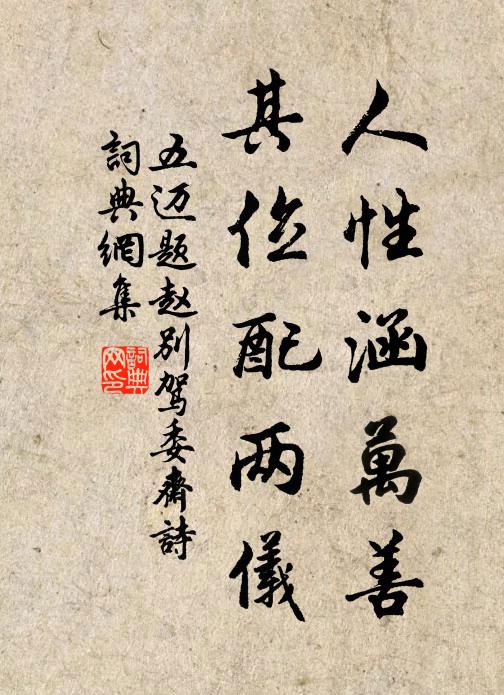 人性涵萬善
其位配两儀
五迈题赵别驾委齋詩
詞典網集
詞典
网印